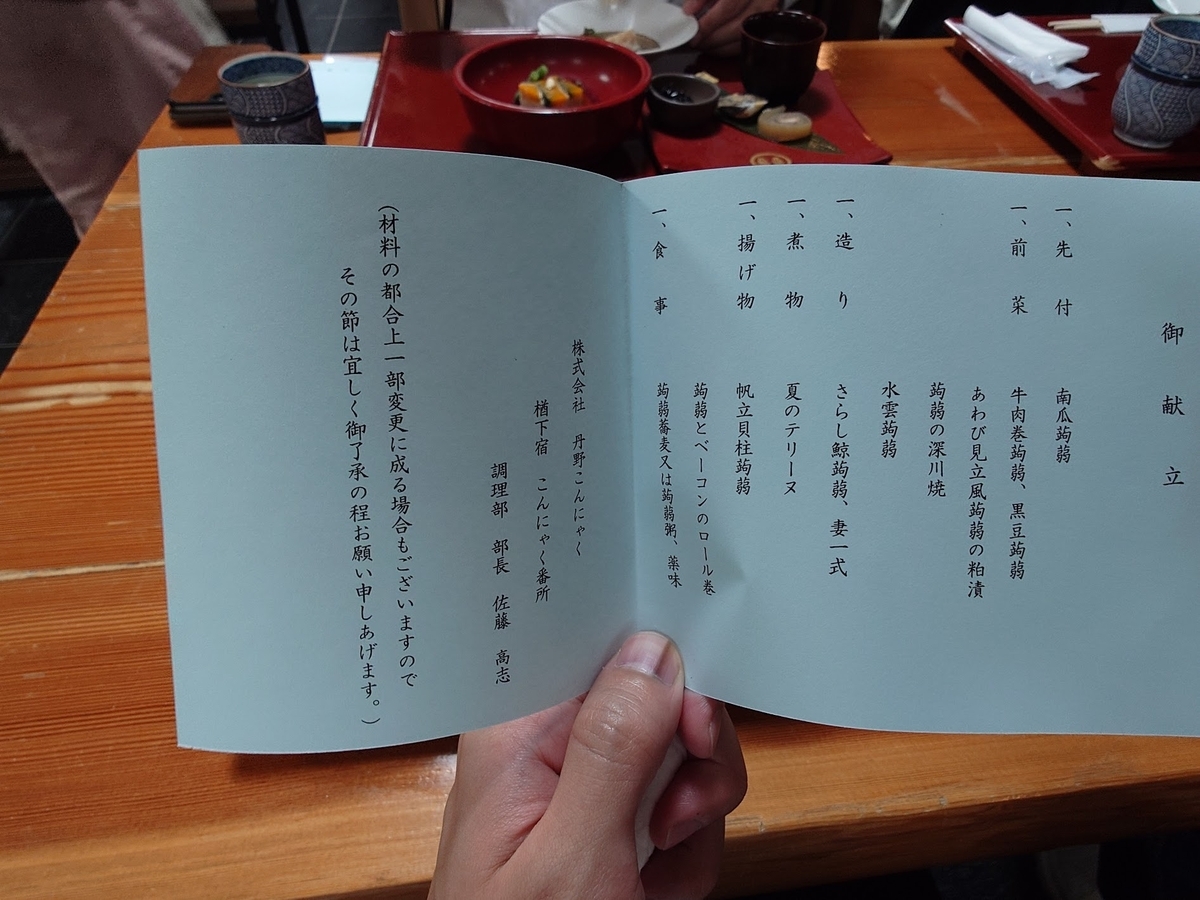 御献立
一、先付 南瓜蒟蒻
一、前菜 牛肉巻蒟蒻、黒豆蒟蒻
あわび見立風蒟蒻の粕漬
蒟蒻の深川焼
水雲蒟蒻
一、造り さらし鯨蒟蒻、妻一式
一、煮物 夏のテリーヌ
一、揚げ物 帆立貝柱蒟蒻
蒟蒻とベーコンのロール巻
一、食事 蒟蒻蕎麦又は蒟蒻粥、薬味
株式会社 丹野こんにゃく
楢下宿 こんにゃく番所
調理部 部長 佐藤 高志
(材料の都合上一部変更に成る場合もございますので
その節は宜しく御了承の程お願い申しあげます。)